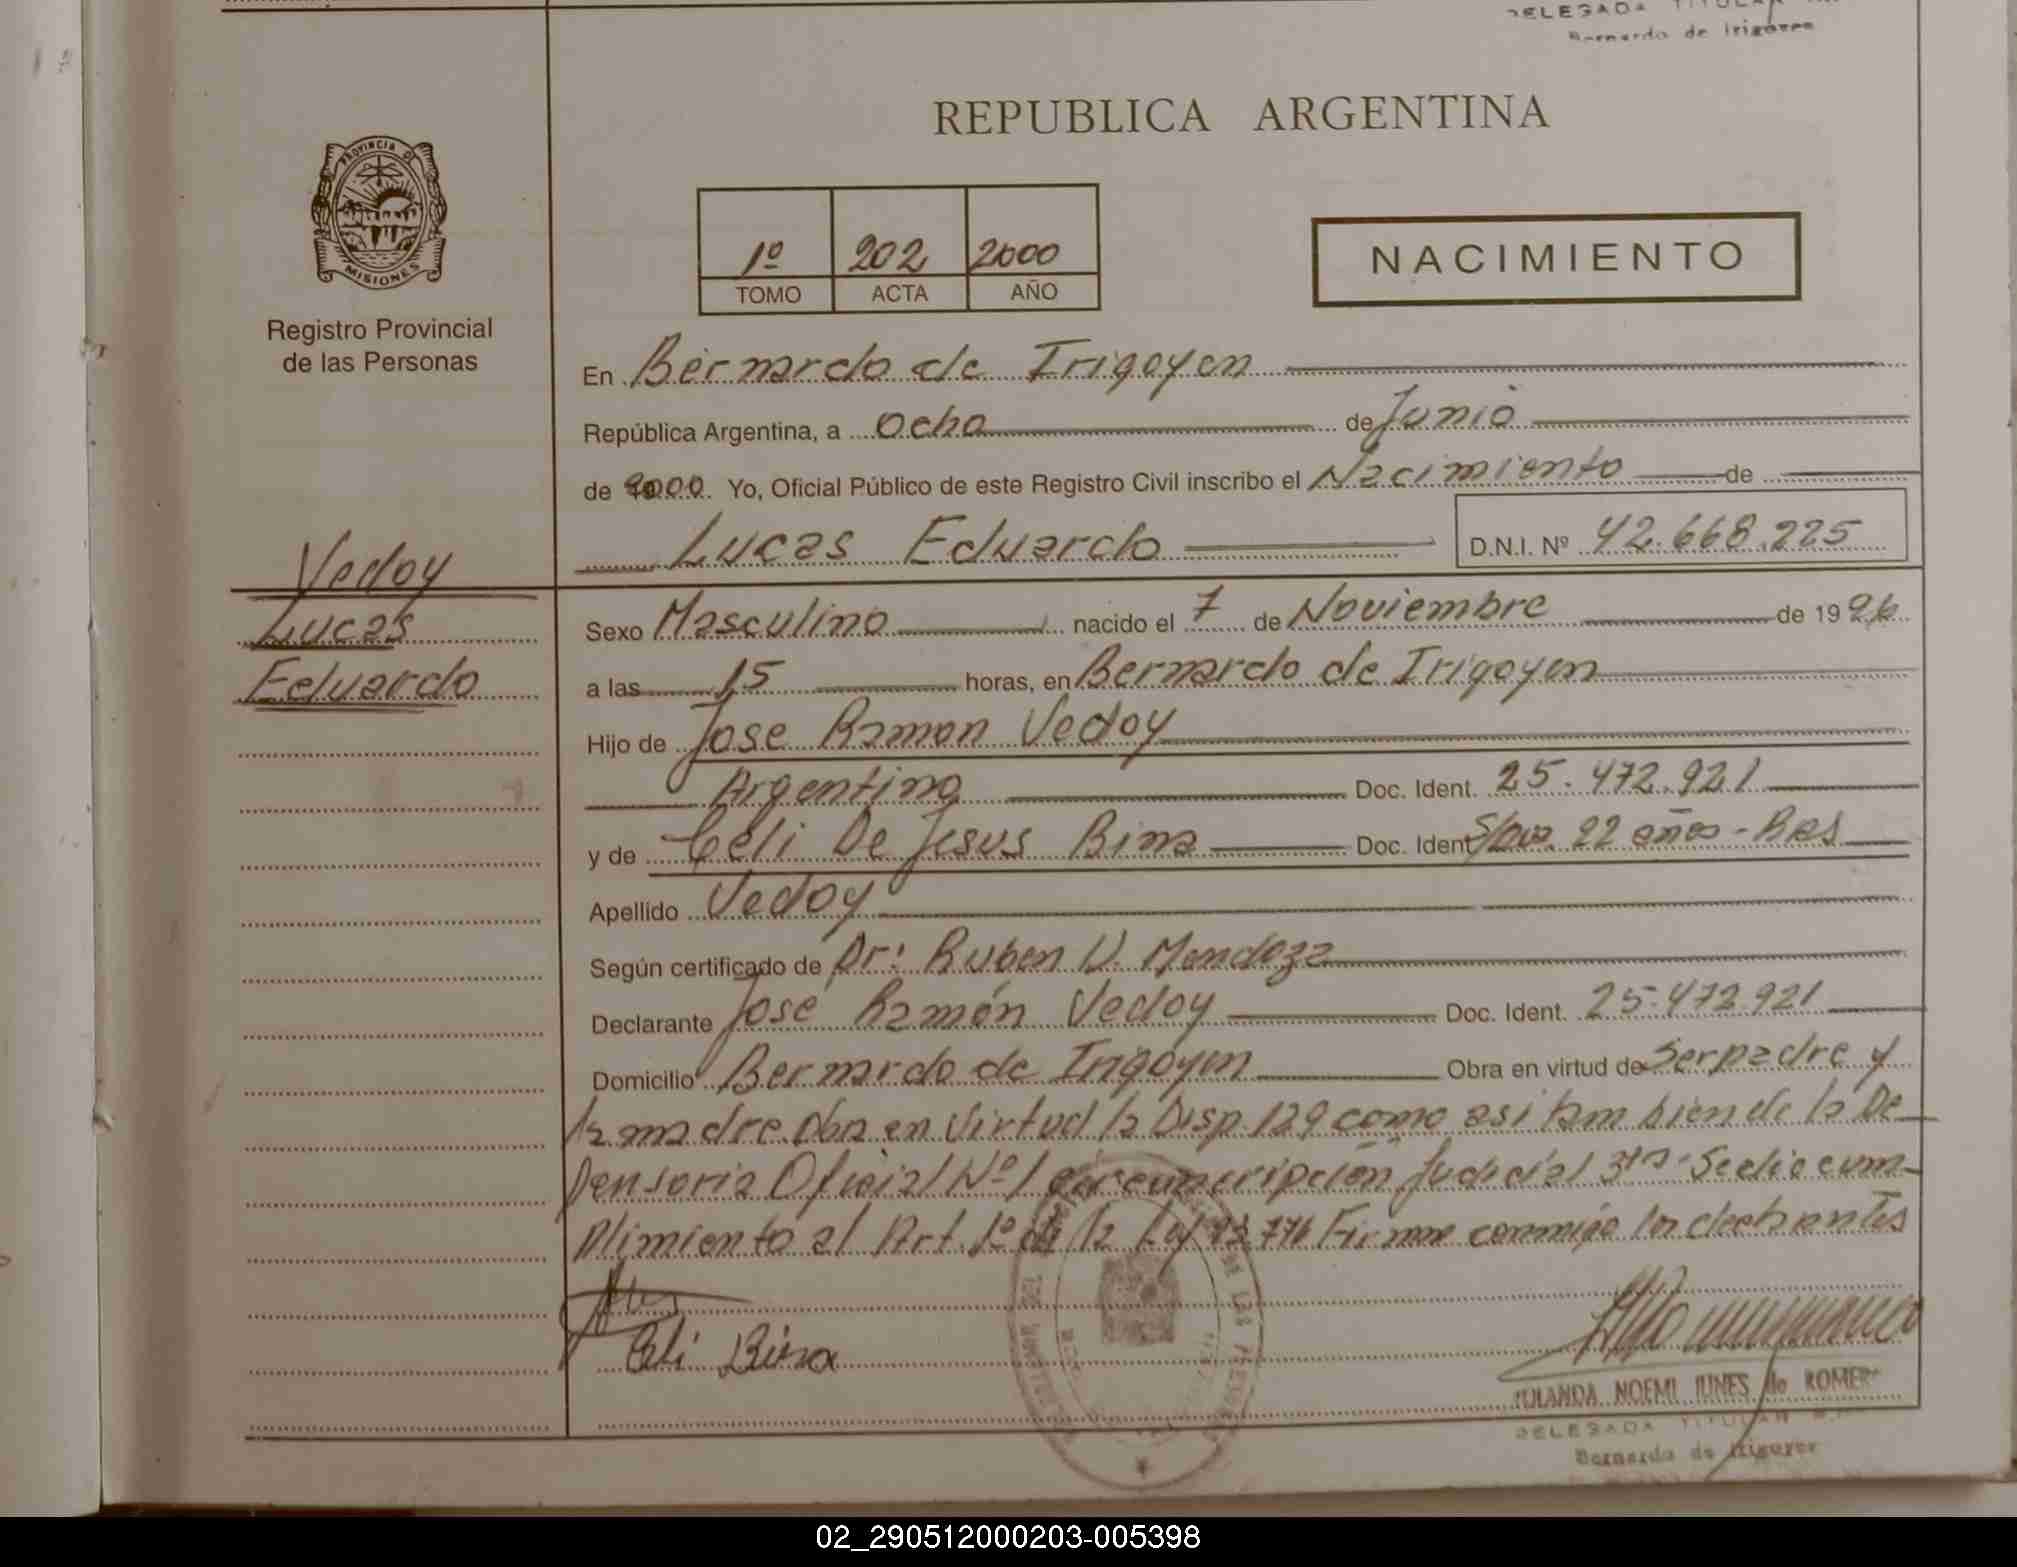 DELEGADA TITULAR
Bernardo de Irigoyen
REPUBLICA ARGENTINA
PROVINCIA DE
MISIONES
1º 202 2000
TOMO ACTA AÑO
NACIMIENTO
Registro Provincial
de las Personas
En Bernardo de Irigoyen
República Argentina, a Ocho de Junio
de 2000. Yo, Oficial Público de este Registro Civil inscribo el Nacimiento de
Lucas Eduardo D.N.I. Nº 42.668.225
Vedoy
Lucas
Eduardo
Sexo Masculino nacido el 7 de Noviembre de 1996
a las 15 horas, en Bernardo de Irigoyen
Hijo de Jose Ramon Vedoy
Argentino Doc. Ident. 25.472.921
y de Celi De Jesus Bina Doc. Ident 22 años - Bras
Apellido Vedoy
Según certificado de Dr: Ruben V. Mendoza
Declarante José Ramón Vedoy Doc. Ident. 25.472.921
Domicilio Bernardo de Irigoyen Obra en virtud de Ser padre y
la madre obra en virtud la Disp. 129 como asi tam bien de la De
fensoria Oficial Nº 1 circunscripción Judicial 3ra. Se dio cum-
plimiento al Art. 1º de la Ley Firman conmigo los declarantes
Celi Bina
YOLANDA NOEMI IUNES de ROMERO
DELEGADA TITULAR
Bernardo de Irigoyen
02_290512000203-005398